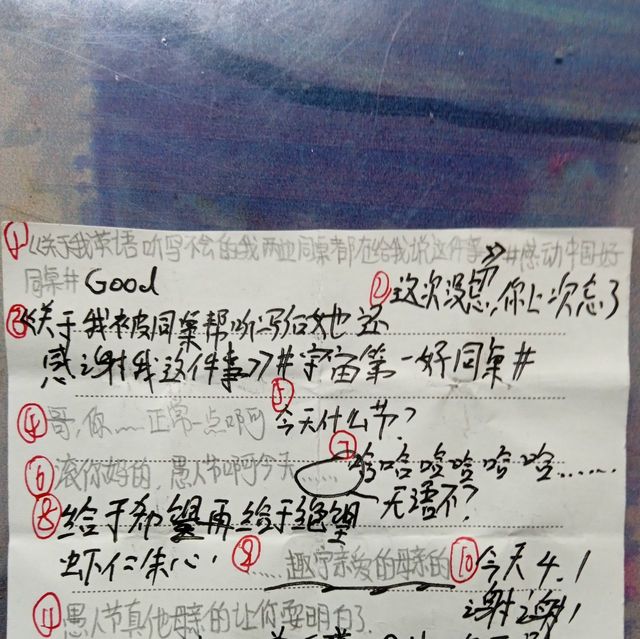 ①《关于我英语听写不会的我两边同桌都在给我说这件事》#感动中国好
同桌# Good
②这次没忘,你上次忘了
③《关于我被同桌帮听写后她还
感谢我这件事》#宇宙第一好同桌#
④哥,你……正常一点啊啊
⑤今天什么节?
⑥滚你妈的,愚人节啊今天……
⑦哈哈哈哈哈哈……
无语不?
⑧给予希望再给予绝望
虾仁朱心!
⑨……趣宁亲爱的母亲的
⑩今天4.1
谢谢!
⑪愚人节真他母亲的让你耍明白了.